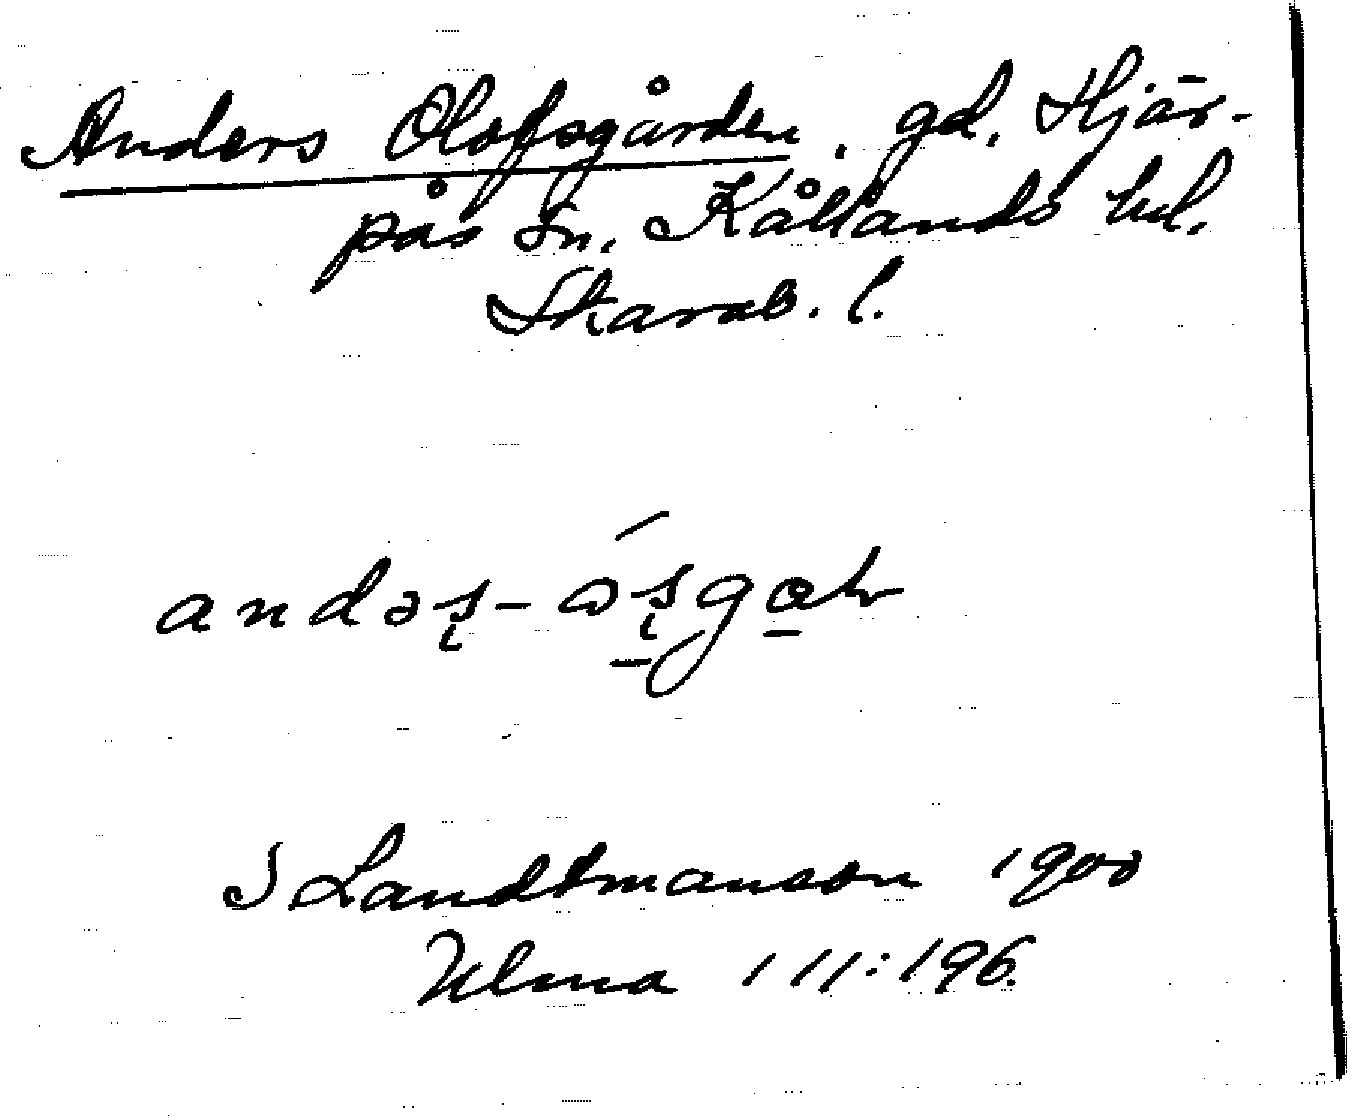 Anders Olofsgården, gd. Hjär-
pås sn. Kållands hd.
Skarab. l.
andəș-ɷ́șgɑḷ
S Landtmanson 1900
Ulma 111:196.